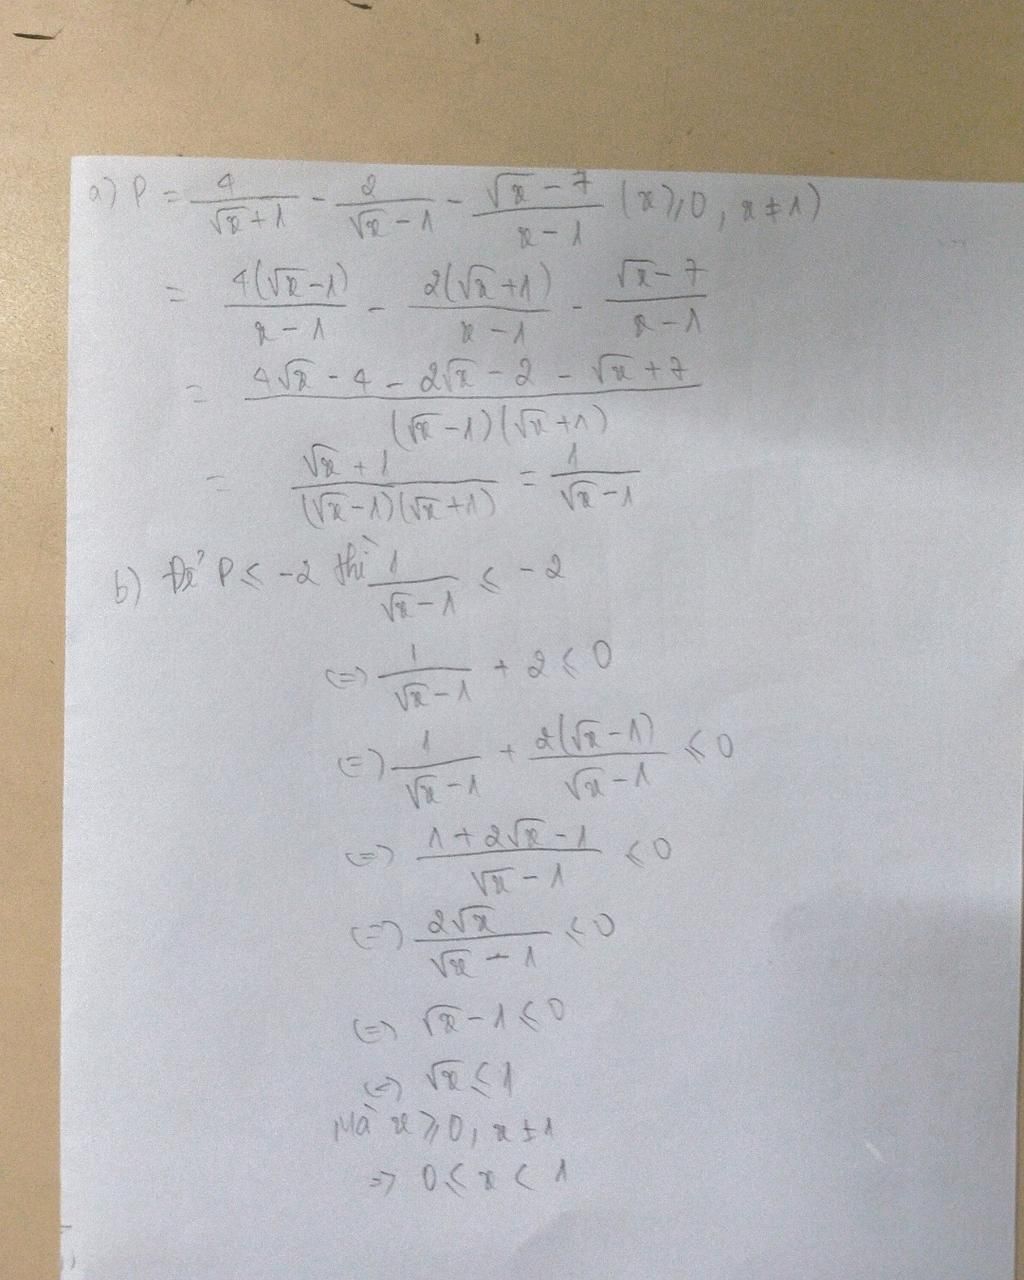 a) P = 4/(√x+1) - 2/(√x-1) - (√x-7)/(x-1) (x≥0, x≠1)
= 4(√x-1)/(x-1) - 2(√x+1)/(x-1) - (√x-7)/(x-1)
= (4√x - 4 - 2√x - 2 - √x + 7)/((√x-1)(√x+1))
= (√x+1)/((√x-1)(√x+1)) = 1/(√x-1)
b) Để P ≤ -2 thì 1/(√x-1) ≤ -2
(=) 1/(√x-1) + 2 ≤ 0
(=) 1/(√x-1) + 2(√x-1)/(√x-1) ≤ 0
(=) (1+2√x-1)/(√x-1) ≤ 0
(=) 2√x/(√x-1) ≤ 0
(=) √x-1 ≤ 0
(=) √x ≤ 1
Mà x ≥ 0, x ≠ 1
=> 0 ≤ x < 1